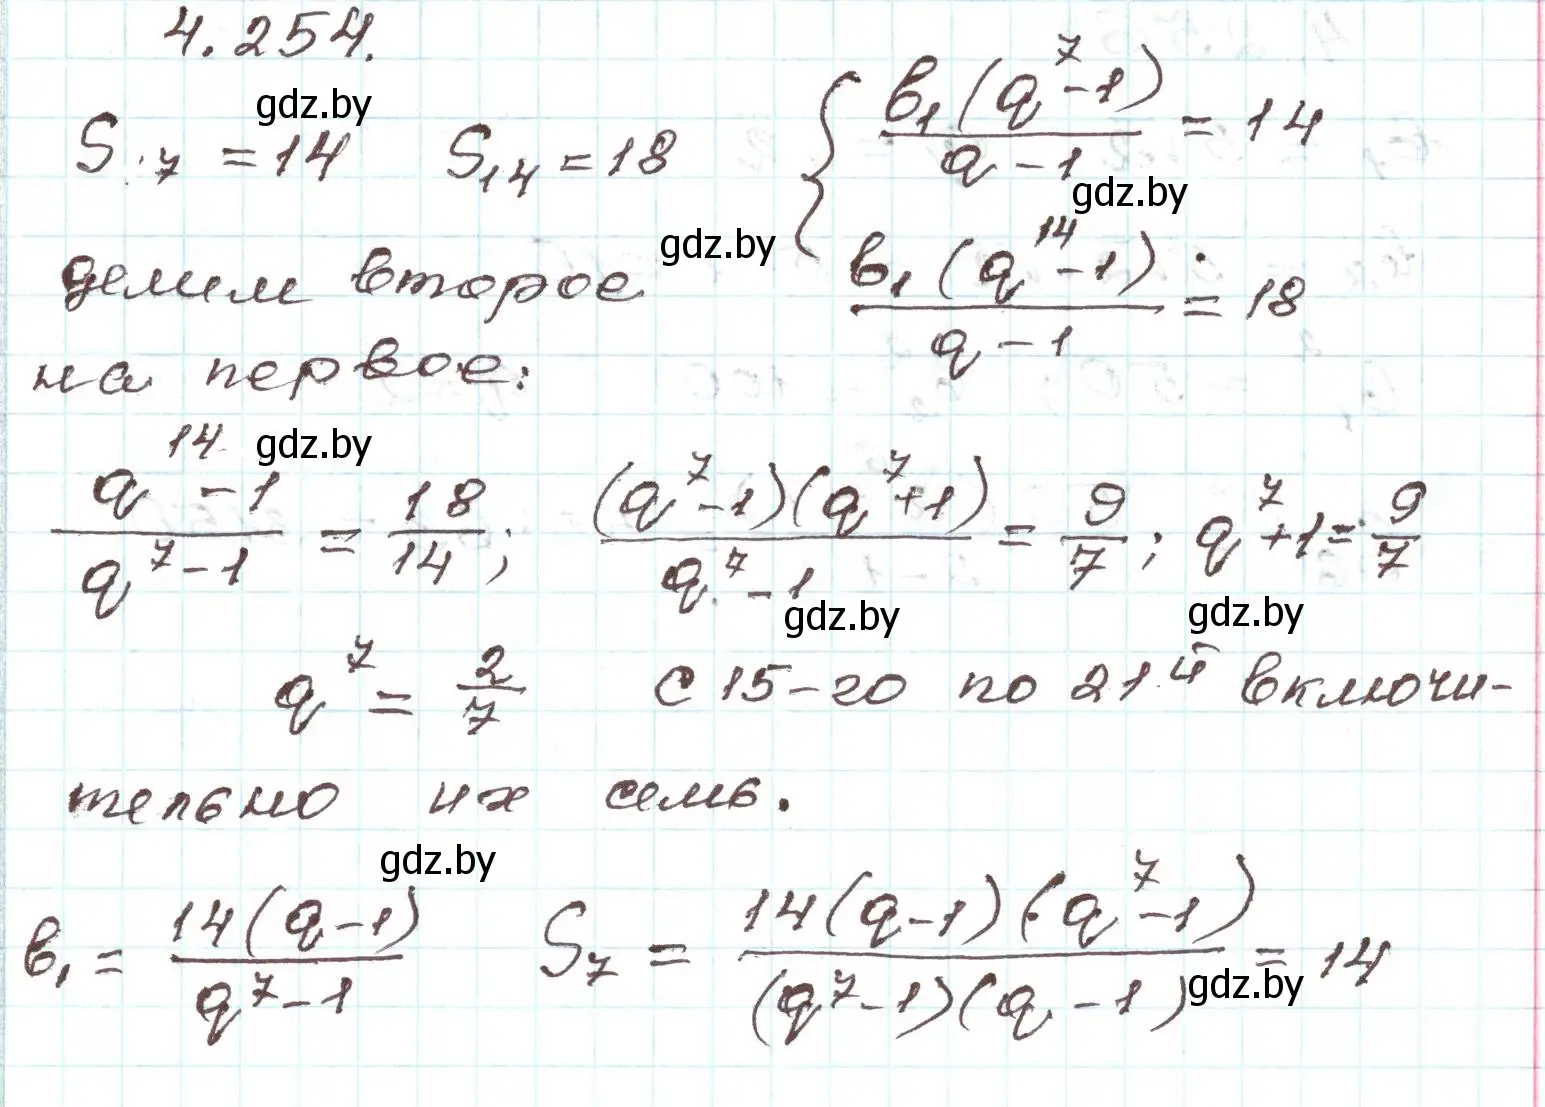 4.254.
gdz.by
S₇ = 14 S₁₄ = 18
{ в₁(q⁷-1)/(q-1) = 14
gdz.by
в₁(q¹⁴-1)/(q-1) = 18
gdz.by
делим второе
на первое:
gdz.by
(q¹⁴-1)/(q⁷-1) = 18/14; (q⁷-1)(q⁷+1)/(q⁷-1) = 9/7; q⁷+1 = 9/7
gdz.by gdz.by
q⁷ = 2/7 с 15-го по 21й включи-
тельно их семь.
gdz.by
в₁ = 14(q-1)/(q⁷-1) S₇ = 14(q-1)(q⁷-1)/((q⁷-1)(q-1)) = 14
gdz.by